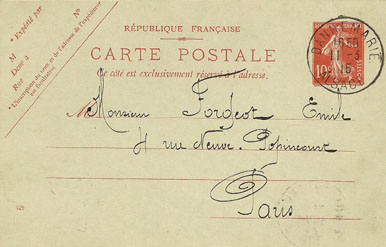 * Expédié par
M
Demt à
Rue
N°
* L'inscription du nom et de l'adresse de l'expéditeur
est facultative.
RÉPUBLIQUE FRANÇAISE
CARTE POSTALE
Ce côté est exclusivement réservé à l'adresse.
10c
MARIE
11-3
15
M Monsieur Forgeot Emile
4 rue Neuve Popincourt
Paris